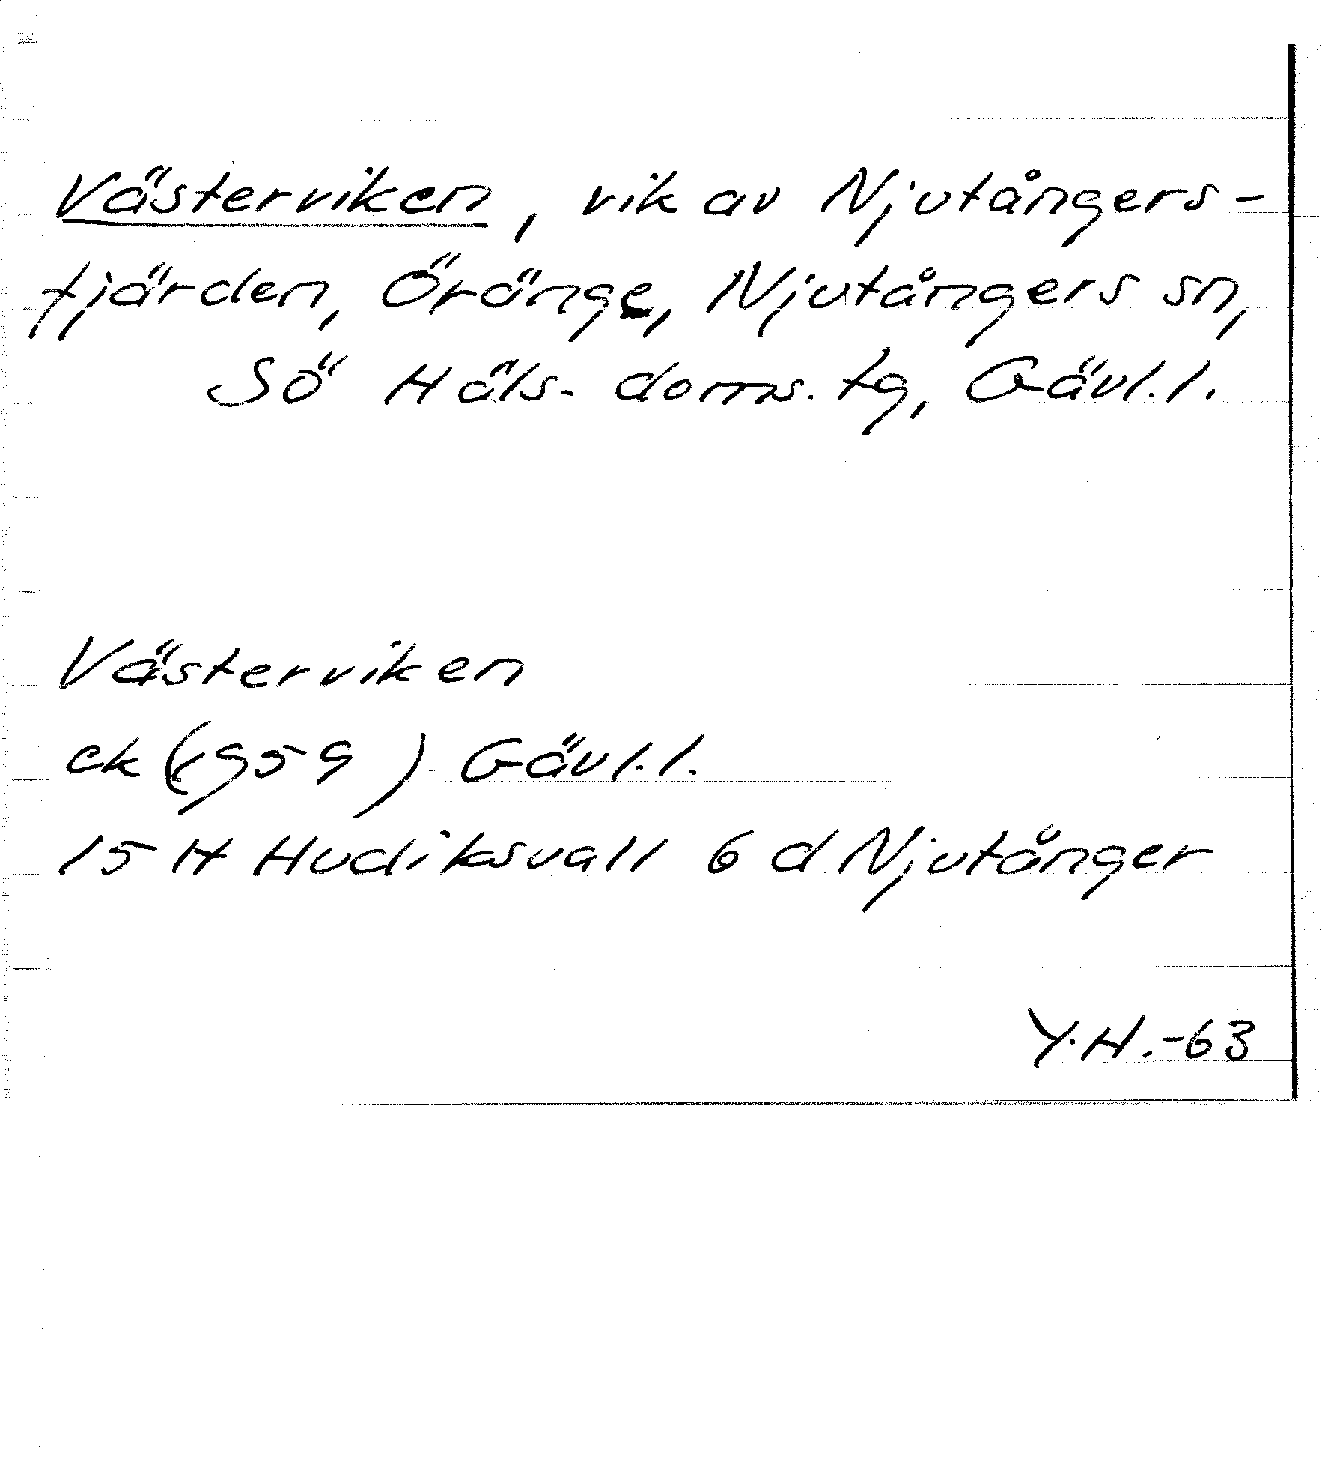 Västerviken, vik av Njutångers-
fjärden, Öränge, Njutångers sn,
Sö Häls. doms. tg, Gävl.l.
Västerviken
ek (1959) Gävl.l.
15 H Hudiksvall 6 d Njutånger
Y.H.-63